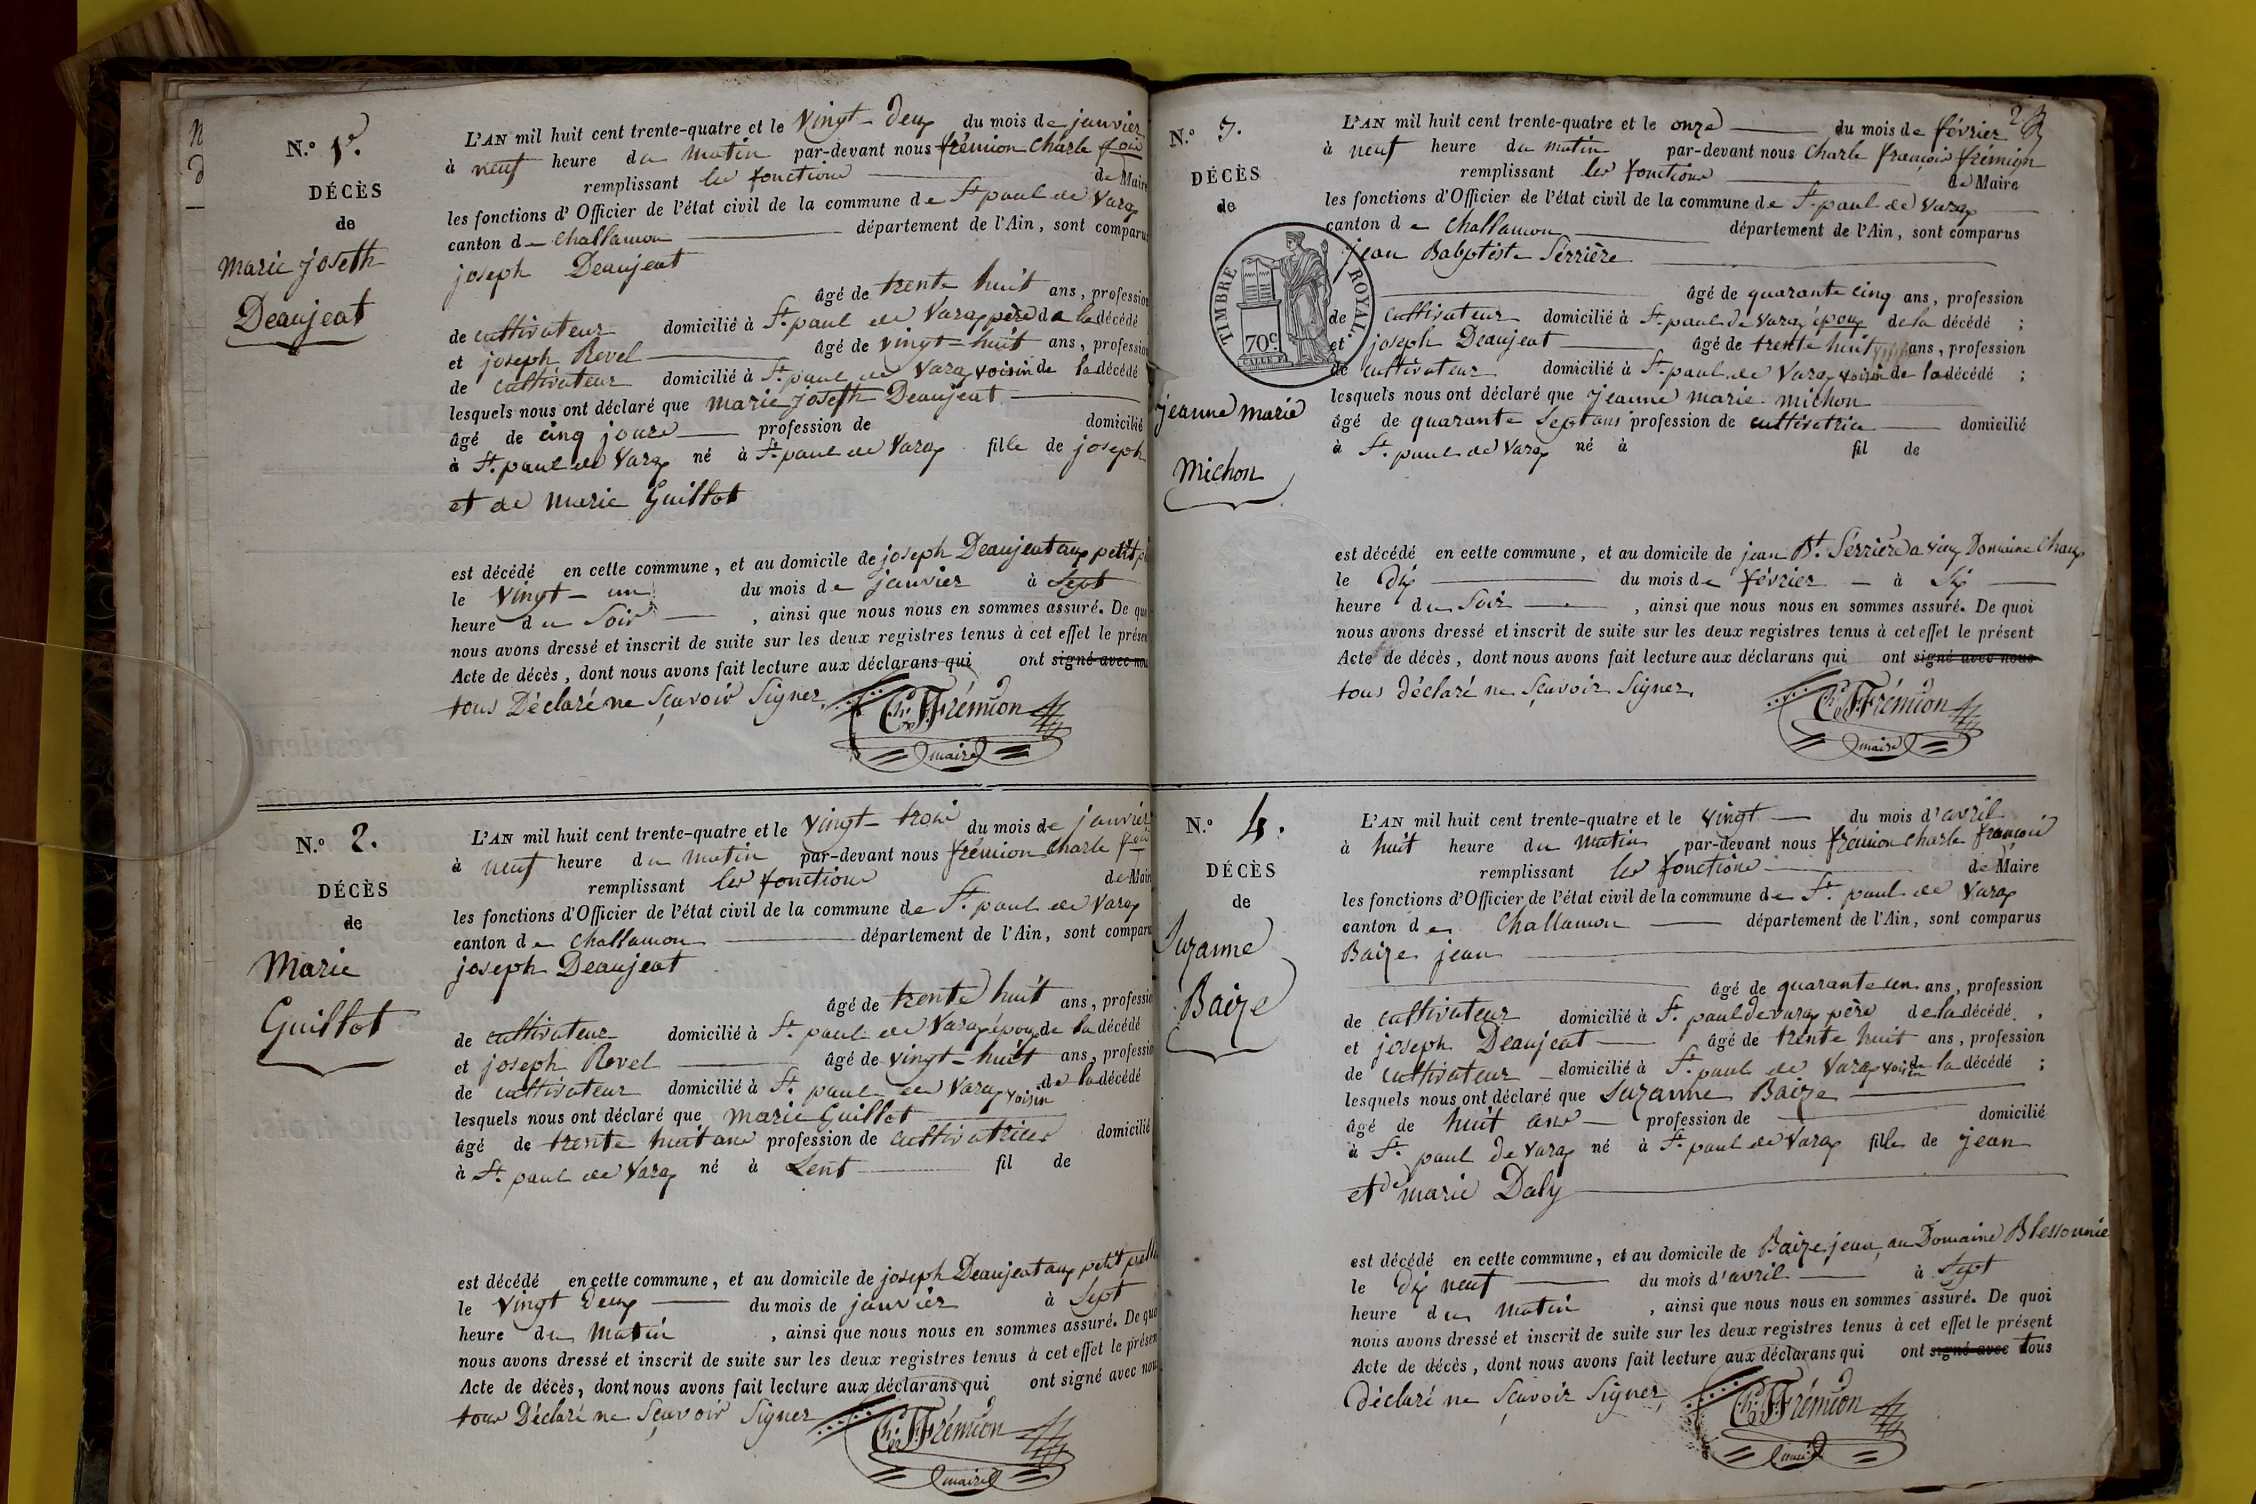 N.º 1er.
DÉCÈS
de
Marie joseth
Deaujeat
L'AN mil huit cent trente-quatre et le vingt-deux du mois de janvier
à neuf heure du matin par-devant nous frémion Charle fois
remplissant les fonctions de Maire
les fonctions d'Officier de l'état civil de la commune de St. paul de Varax
canton de Challamon département de l'Ain, sont comparus
joseph Deaujeat
âgé de trente huit ans, profession
de cultivateur domicilié à St. paul de Varax père de la décédé
et joseph Revel âgé de vingt-huit ans, profession
de cultivateur domicilié à St. paul de Varax voisin de la décédé
lesquels nous ont déclaré que Marie joseth Deaujeat
âgé de cinq jours profession de domicilié
à St. paul de Varax né à St. paul de Varax fille de joseph
et de Marie Guillot
est décédé en cette commune, et au domicile de joseph Deaujeat aux petit
le vingt-un du mois de janvier à Sept
heure du Soir, ainsi que nous nous en sommes assuré. De quoi
nous avons dressé et inscrit de suite sur les deux registres tenus à cet effet le présent
Acte de décès, dont nous avons fait lecture aux déclarans qui ont signé avec nous
tous Déclaré ne Sçavoir Signer
Ch. F. Frémion
maire
N.º 2.
DÉCÈS
de
Marie
Guillot
L'AN mil huit cent trente-quatre et le vingt-trois du mois de janvier
à neuf heure du matin par-devant nous frémion Charle fois
remplissant les fonctions de Maire
les fonctions d'Officier de l'état civil de la commune de St. paul de Varax
canton de Challamon département de l'Ain, sont comparus
joseph Deaujeat
âgé de trente huit ans, profession
de cultivateur domicilié à St. paul de Varax époux de la décédé
et joseph Revel âgé de vingt-huit ans, profession
de cultivateur domicilié à St. paul de Varax voisin de la décédé
lesquels nous ont déclaré que Marie Guillot
âgé de trente huit ans profession de cultivatrice domicilié
à St. paul de Varax né à Lent fil de
est décédé en cette commune, et au domicile de joseph Deaujeat aux petit
le vingt deux du mois de janvier à Sept
heure du Matin, ainsi que nous nous en sommes assuré. De quoi
nous avons dressé et inscrit de suite sur les deux registres tenus à cet effet le présent
Acte de décès, dont nous avons fait lecture aux déclarans qui ont signé avec nous
tous Déclaré ne Sçavoir Signer
Ch. F. Frémion
maire
2
N.º 3.
DÉCÈS
de
TIMBRE ROYAL.
70c
jeanne marie
Michon
L'AN mil huit cent trente-quatre et le onze du mois de février
à neuf heure du matin par-devant nous Charle françois frémion
remplissant les fonctions de Maire
les fonctions d'Officier de l'état civil de la commune de St. paul de Varax
canton de Challamon département de l'Ain, sont comparus
jean Babptiste Serrière
âgé de quarante cinq ans, profession
de cultivateur domicilié à St. paul de Varax époux de la décédé ;
et joseph Deaujeat âgé de trente huit ans, profession
de cultivateur domicilié à St. paul de Varax voisin de la décédé ;
lesquels nous ont déclaré que jeanne marie michon
âgé de quarante Sept ans profession de cultivatrice domicilié
à St. paul de Varax né à fil de
est décédé en cette commune, et au domicile de jean Bt. Serrière a vieux Domaine Chaux
le dix du mois de février à Six
heure du Soir, ainsi que nous nous en sommes assuré. De quoi
nous avons dressé et inscrit de suite sur les deux registres tenus à cet effet le présent
Acte de décès, dont nous avons fait lecture aux déclarans qui ont signé avec nous
tous déclaré ne Sçavoir Signer
Ch. F. Frémion
maire
N.º 4.
DÉCÈS
de
Suzanne
Baize
L'AN mil huit cent trente-quatre et le vingt du mois d'avril
à huit heure du Matin par-devant nous frémion Charle françois
remplissant les fonctions de Maire
les fonctions d'Officier de l'état civil de la commune de St. paul de Varax
canton de Challamon département de l'Ain, sont comparus
Baize jean
âgé de quarante un ans, profession
de cultivateur domicilié à St. paul de varax père de la décédé
et joseph Deaujeat âgé de trente huit ans, profession
de cultivateur domicilié à St. paul de Varax voisin de la décédé ;
lesquels nous ont déclaré que Suzanne Baize
âgé de huit ans profession de domicilié
à St. paul de Varax né à St. paul de Varax fille de jean
et de marie Daly
est décédé en cette commune, et au domicile de Baize jean au Domaine Blessonnie
le dix neuf du mois d'avril à Sept
heure du Matin, ainsi que nous nous en sommes assuré. De quoi
nous avons dressé et inscrit de suite sur les deux registres tenus à cet effet le présent
Acte de décès, dont nous avons fait lecture aux déclarans qui ont signé avec tous
déclaré ne Sçavoir Signer
Ch. F. Frémion
maire